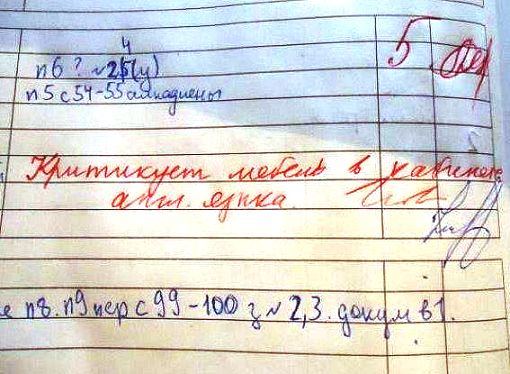 п6 ? №25(у)
4
5
п5 с54-55
Критикует мебель в кабинете
англ. языка.
е п8. п9 пер с 99-100 з №2,3. докум в1.